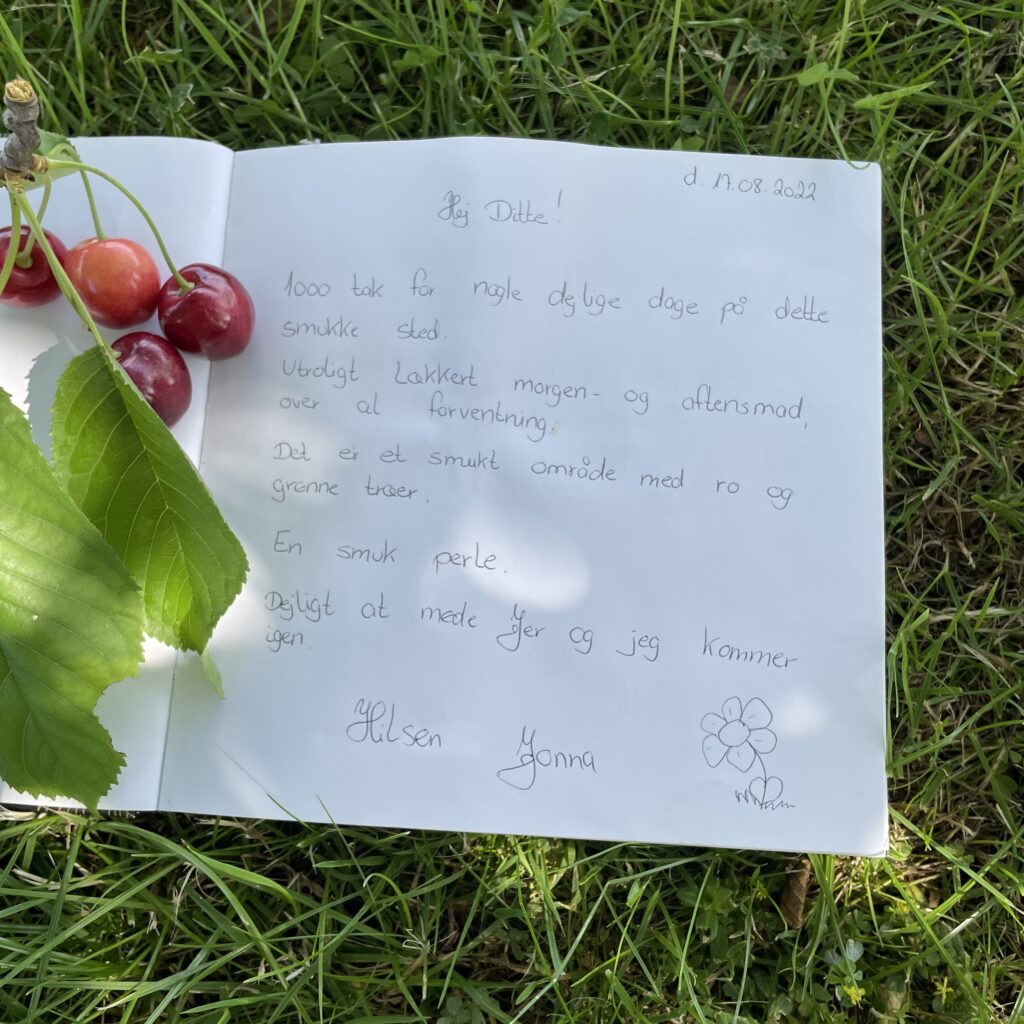 d. 17.08.2022
Hej Ditte!
1000 tak for nogle dejlige dage på dette
smukke sted.
Utroligt Lækkert morgen- og aftensmad,
over al forventning.
Det er et smukt område med ro og
grønne træer.
En smuk perle.
Dejligt at møde Jer og jeg kommer
igen.
Hilsen Jonna